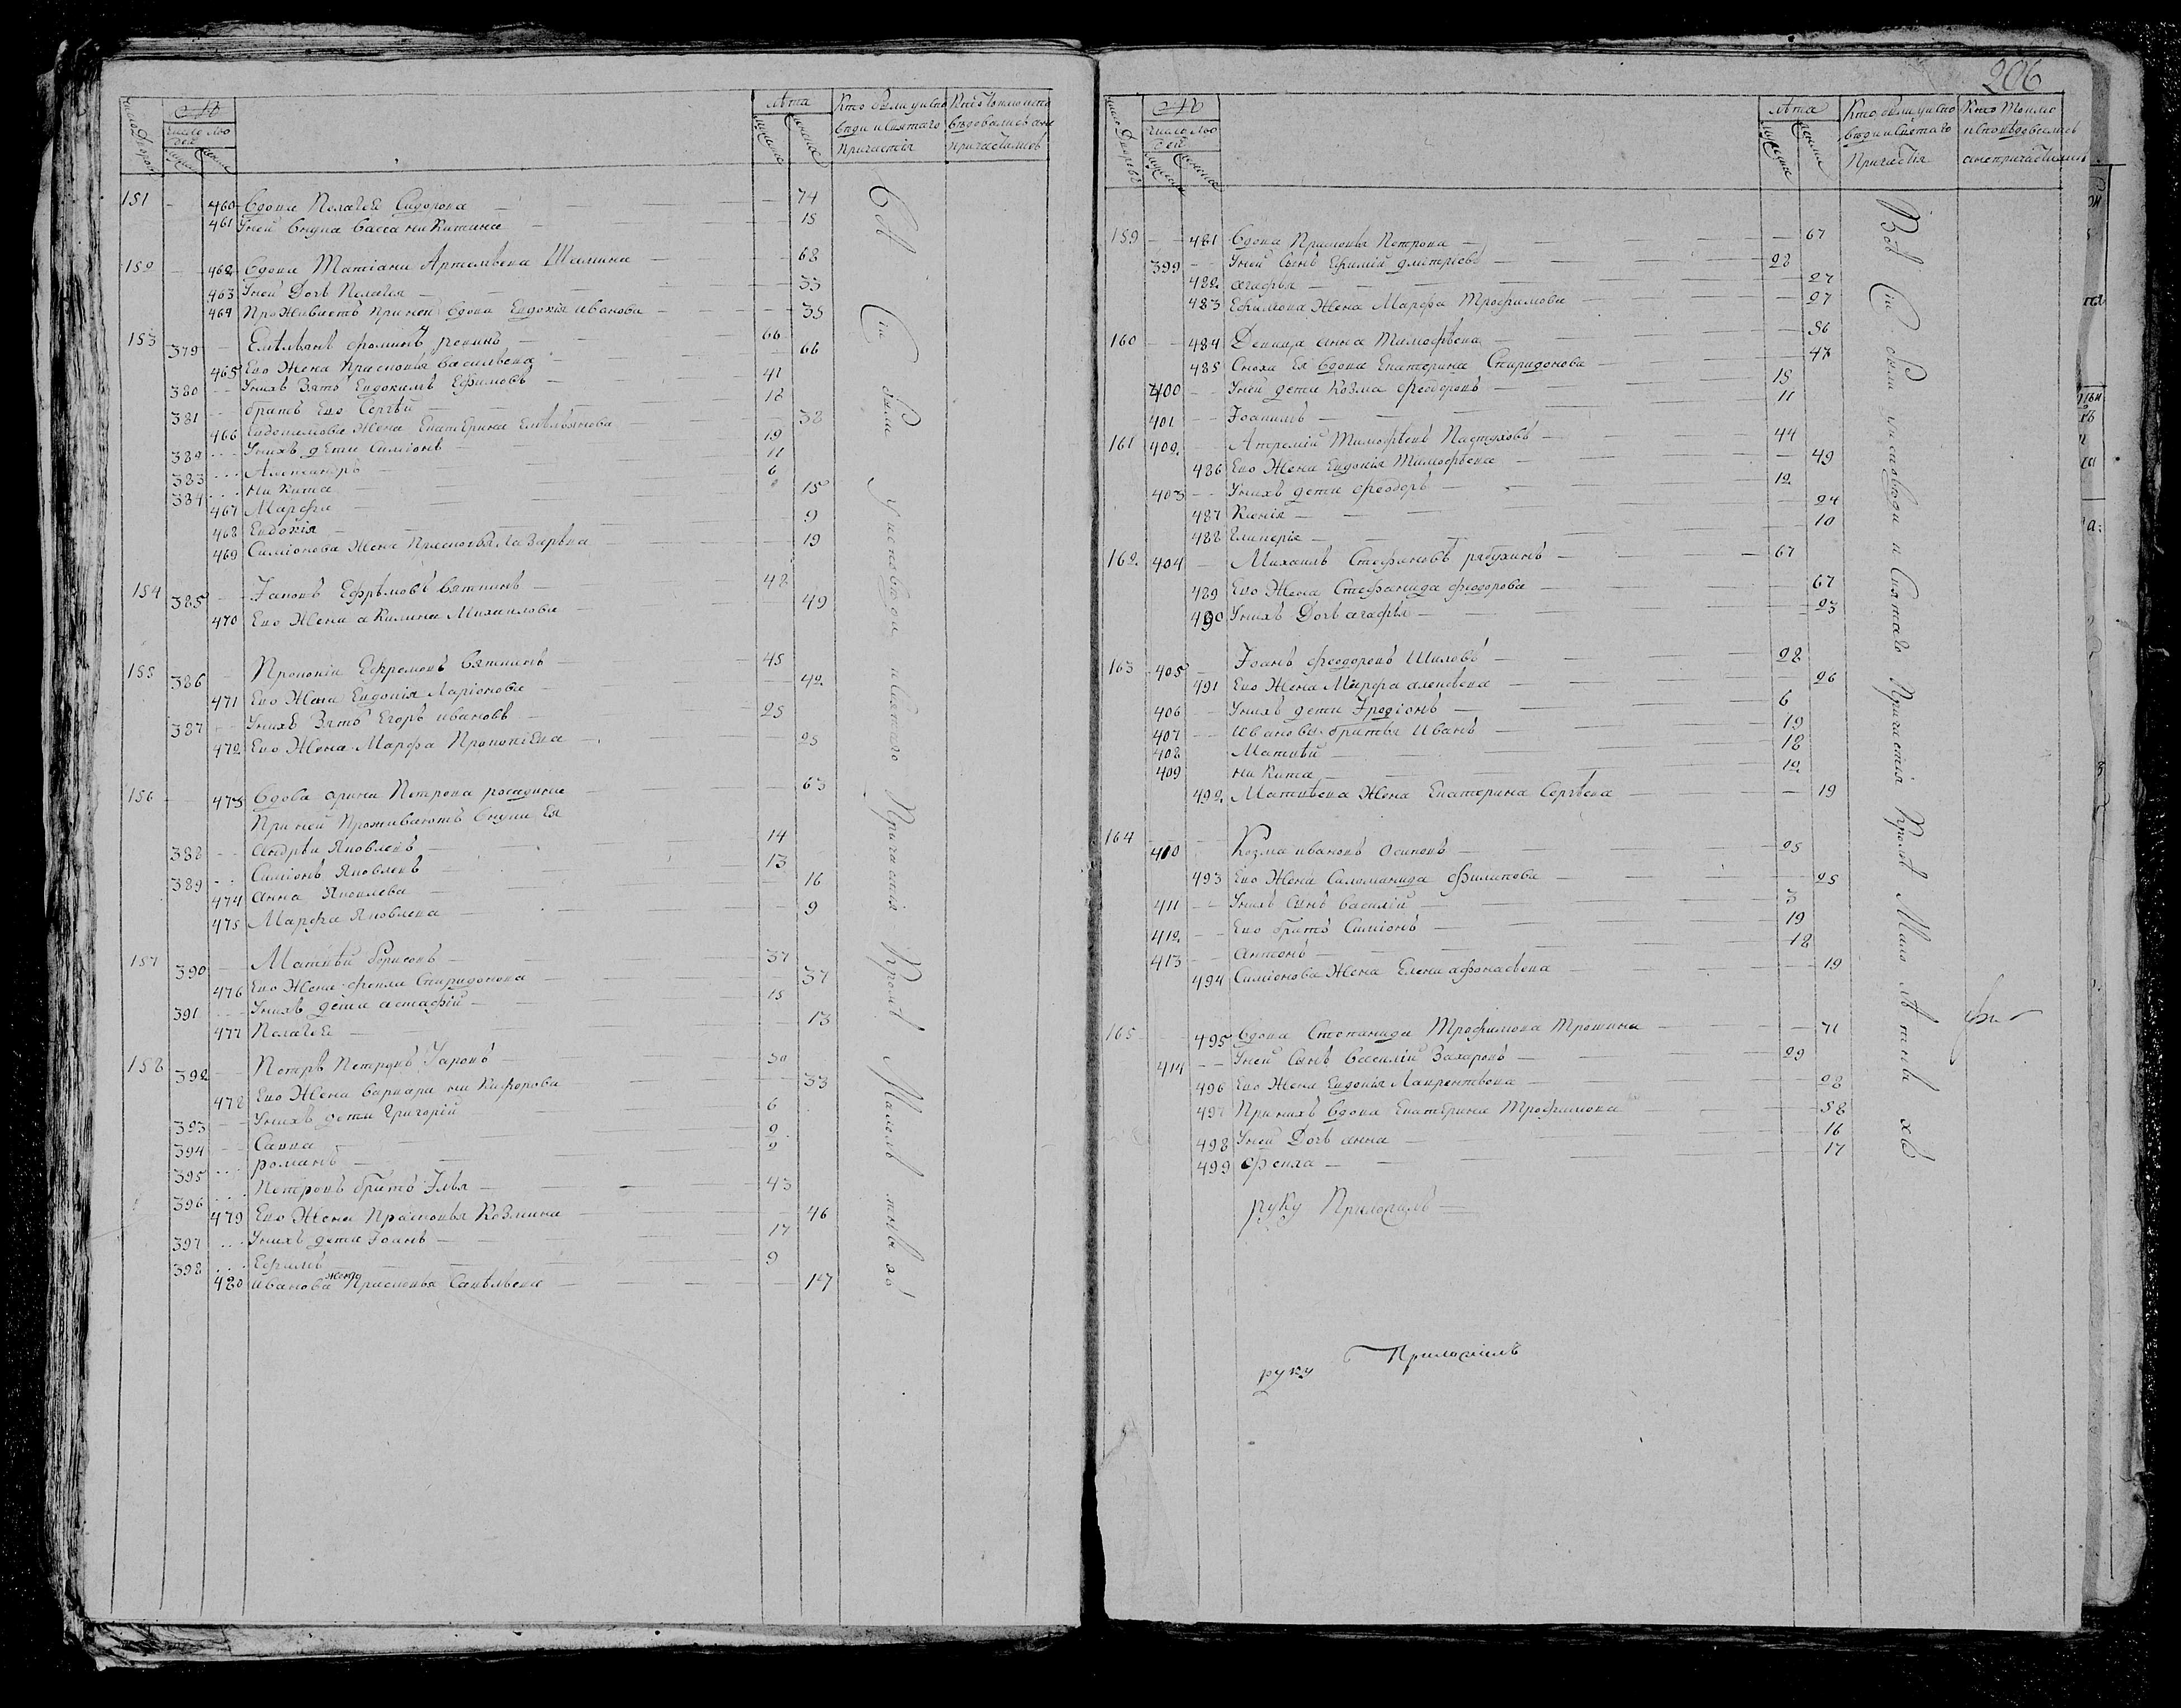 число Дворовъ № число людей мужска женска лѣта мужска женска Кто были уиспо Кто Токмо испо
вѣди и Святаго вѣдовались ане
Причастія причастились
151 460 Вдова Пелагея Сидорова 74
461 Уней внука васса никитина 15
152 462 Вдова Татіана Артемьева Шамина 68
463 Уней Дочь Пелагея 33
464 Проживаетъ при ней вдова Евдокія иванова 35
153 379 Емѣльянъ фоминъ репинъ 66
465 Ево Жена Прасковья васильева 66
380 Унихъ Зять Евдокимъ Ефимовъ 41
381 братъ Ево Сергѣй 18
466 Евдокимова Жена Екатерина Емѣльянова 38
382 Унихъ дети Симіонъ 19
383 Александръ 11
384 никита 6
467 Марфа 15
468 Евдокія 9
469 Симіонова Жена Прасковья Лазарѣва 19
154 385 Іаковъ Ефрѣмовъ вяткинъ 48
470 Ево Жена акилина Михаилова 49
155 386 Прокопій Ефремовъ Вяткинъ 45
471 Ево Жена Евдокія Ларіонова 42
387 Унихъ Зять Егоръ ивановъ 25
472 Ево Жена Марфа Прокопіева 25
156 473 Вдова орина Петрова 63
При ней Проживаютъ внуки Ея
388 андрѣй Яковлевъ 14
389 Симіонъ Яковлевъ 13
474 анна Яковлева 16
475 Марфа Яковлева 9
157 390 Матвѣй борисовъ 37
476 Ево Жена фекла Спиридонова 37
391 Унихъ дети астафій 15
477 Пелагея 13
158 392 Петръ Петровъ 30
478 Ево Жена варвара никифорова 33
393 Унихъ дети Григорій 6
394 Савва 2
395 романъ 2
396 Петровъ братъ Илья 43
479 Ево Жена Прасковья Козмина 46
397 Унихъ дети Іоанъ 17
398 Ефимъ 9
480 иванова жена Прасковья Савѣльева 17
всѣ сіи были уисповѣди и святаго Причастія Кромѣ Малолѣтныхъ
206
число Дворовъ № число людей мужска женска лѣта мужска женска Кто были уиспо Кто Токмо
вѣди и Святаго исповѣдовались
Причастія анепричастились
159 481 Вдова Прасковья Петрова 67
399 Уней Сынъ Ефимій дмитріевъ 28
482 агафья 27
483 Ефимова Жена Марфа Трофимова 27
160 484 Девица анна Тимофѣева 56
485 Сноха Ея вдова Екатерина Спиридонова 47
400 Уней дети Козма феодоровъ 15
401 Іоакимъ 11
161 402 Артемій Тимофѣевъ Пастуховъ 44
486 Ево Жена Евдокія Тимофѣева 49
403 Унихъ дети феодоръ 12
487 Ксенія 24
488 Гликерія 10
162 404 Михаилъ Стефановъ рябухинъ 67
489 Ево Жена Стефанида феодорова 67
490 Унихъ Дочь агафья 23
163 405 Іоанъ феодоровъ Шиловъ 28
491 Ево Жена Марфа алексѣева 26
406 Унихъ дети Іродіонъ 6
407 ивановы братья Иванъ 19
408 Матвѣй 18
409 никита 12
492 Матвѣева Жена Екатерина Сергѣева 19
164 410 Козма ивановъ осиповъ 25
493 Ево Жена Саломанида филипова 25
411 Унихъ Сынъ василій 3
412 Ево братъ Симіонъ 19
413 антонъ 18
494 Симіонова Жена Елена афонасьева 19
165 495 Вдова Степанида Трофимова Трошина 71
414 Уней Сынъ Василій Захаровъ 29
496 Ево Жена Евдокія Лаврентьева 28
497 При нихъ вдова Екатерина Трофимова 58
498 Уней Дочь анна 16
499 фекла 17
Всѣ Сіи были уисповѣди и Святаго Причастія Кромѣ Мало лѣтныхъ
руку Приложилъ
руку Приложилъ